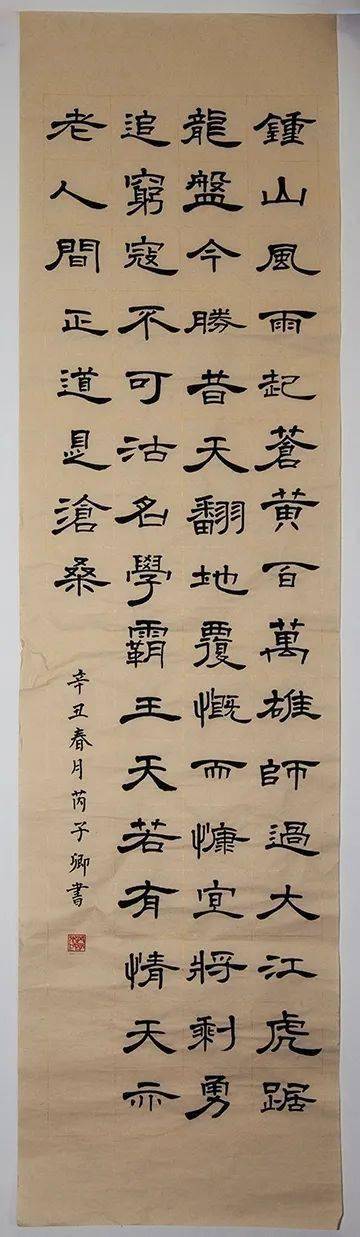 鍾山風雨起蒼黄百萬雄師過大江虎踞
龍盤今勝昔天翻地覆慨而慷宜將剩勇
追窮寇不可沽名學霸王天若有情天亦
老人間正道是滄桑
辛丑春月芮子卿書